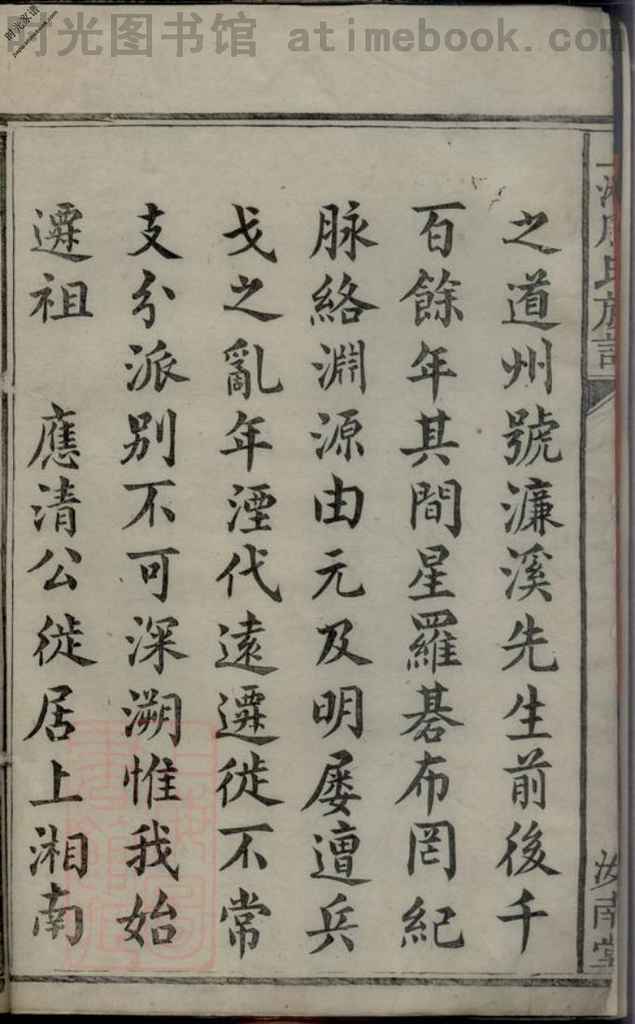 时光图书馆 atimebook.com
时光家谱
之道州號濂溪先生前後千
百餘年其間星羅碁布罔紀
脉絡淵源由元及明屡遭兵
戈之亂年湮代遠遷徙不常
支分派别不可深溯惟我始
遷祖 應清公徙居上湘南
氏族譜
汝南堂